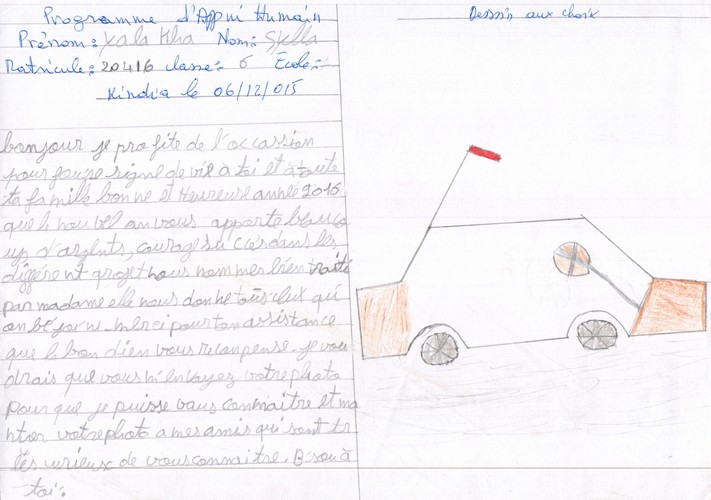 Programme d'Appui Humain
Dessin aux choix
Prénom: Kala Kha Nom: Sylla
Matricule: 20416 classe: 6 École:
Kindia le 06/12/015
bonjour je profite de l'occassion
pour signe de vie à toi et à toute
ta famille bonne et Heureuse année 2016
que le nouvel an vous apporte beauco
up d'argents, courage su ccès dans les
différent projet nous nommes bien traité
par madame elle nous donne tous ceux qui
on besoins merci pour ton assistance
que le bon dieu vous recompense. je vou
drais que vous m'envoyez votre photo
pour que je puisse vous connaître et mo
ntrer votre photo a mes amis qui sont tr
ès curieux de vous connaitre. Bisou à
toi.